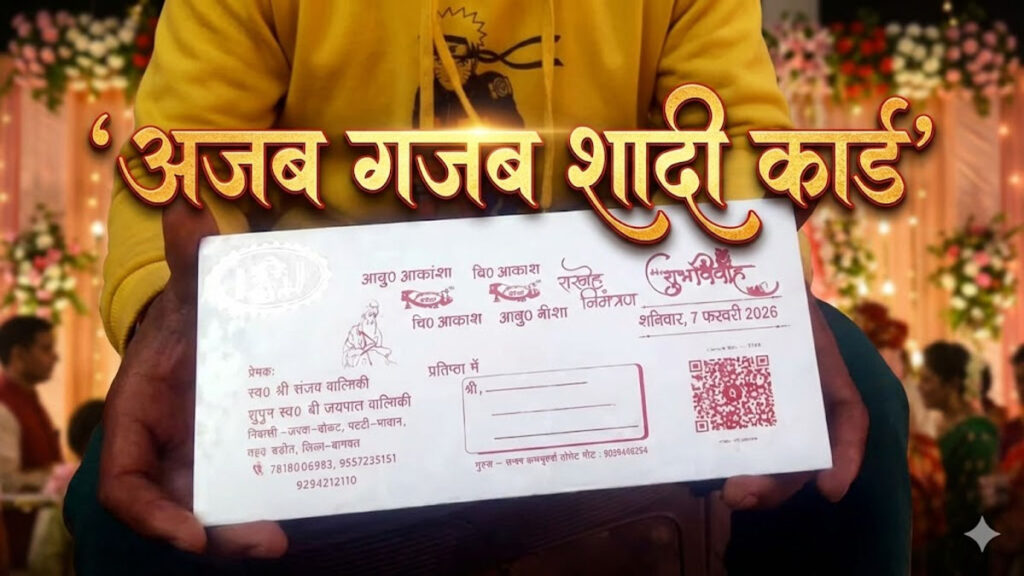 ‘अजब गजब शादी कार्ड’
आवु0 आकांशा
चि0 आकाश
चि0 आकाश
आवु0 मीशा
सस्नेह
निमंत्रण
शुभविवाह
शनिवार, 7 फरवरी 2026
प्रेमक:
स्व0 श्री संजय वाल्मिकी
शुपुन स्व0 बी जयपात वाल्मिकी
निवासी -जरवा-चोकट, पटटी-भावान,
7818006983, 9557235151
9294212110
प्रतिष्ठा में
श्री,
: 9039408254